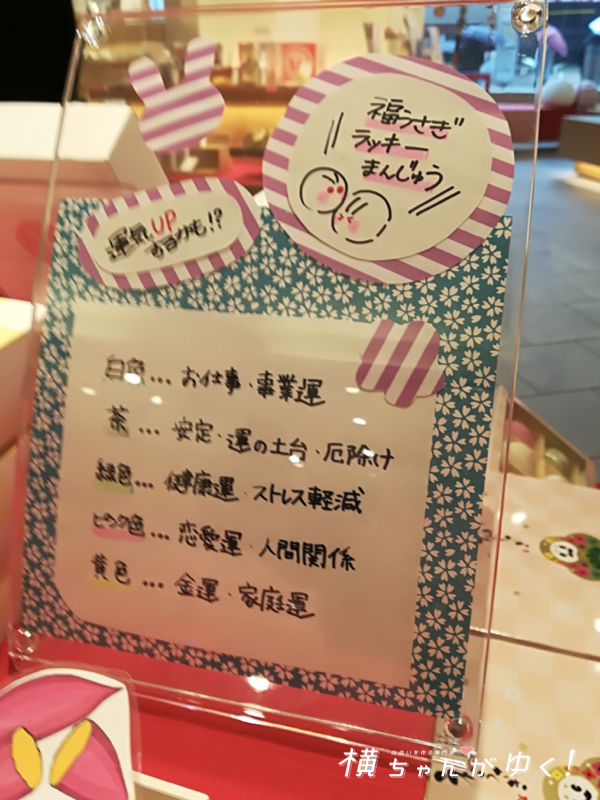 福うさぎ
ラッキー
まんじゅう
運気UP
白色… お仕事・事業運
茶 … 安定・運の土台・厄除け
緑色… 健康運・ストレス軽減
ピンク色… 恋愛運・人間関係
黄色 … 金運・家庭運
横ちゃんがゆく!